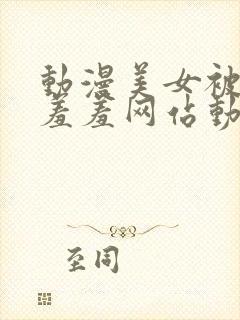 動漫美女被
羞羞网佔動
至同